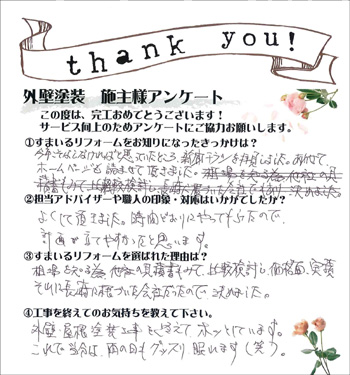 thank you!
外壁塗装 施主様アンケート
この度は、完工おめでとうございます！
サービス向上のためアンケートにご協力お願いします。
①すまいるリフォームをお知りになったきっかけは？
今年そはしなければと思っていたところ、新聞チラシを拝見しました。あわせて、
ホームページも読ませて頂きました。相場を知る為、他社の見
積書もみて、比較検討し
②担当アドバイザーや職人の印象・対応はいかがでしたか？
よくして頂きました。時間どおりにやって下さったので、
計画が立てやすかったと思います。
③すまいるリフォームを選ばれた理由は？
相場を知る為、他社の見積書もみて、比較検討し、価格面、実績
それに長府に根づいた会社だったので決めました。
④工事を終えてのお気持ちを教えて下さい。
外壁・屋根塗装工事を終えてホッとしています。
これで当分は雨の日もグッスリ眠れます（笑）。